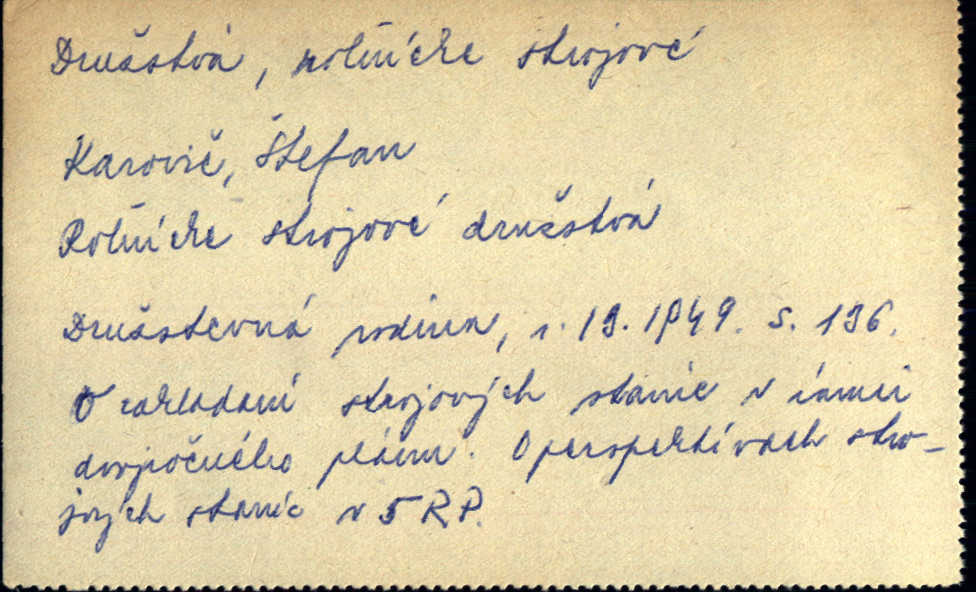 Družstvá, roľnícke strojové
Karovič, Štefan
Roľnícke strojové družstvá
Družstevná rodina, r. 19. 1949. s. 196.
O zakladaní strojových staníc v rámci
dvojročného plánu. O perspektívach stro-
jových staníc v 5 RP.